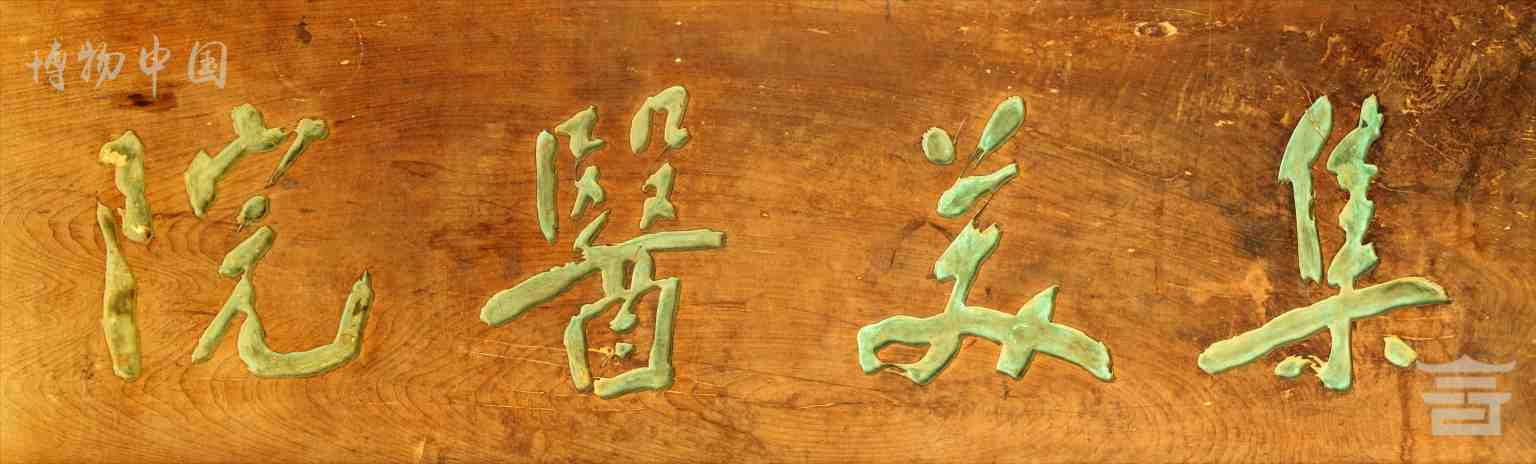 博物中国
集美醫院